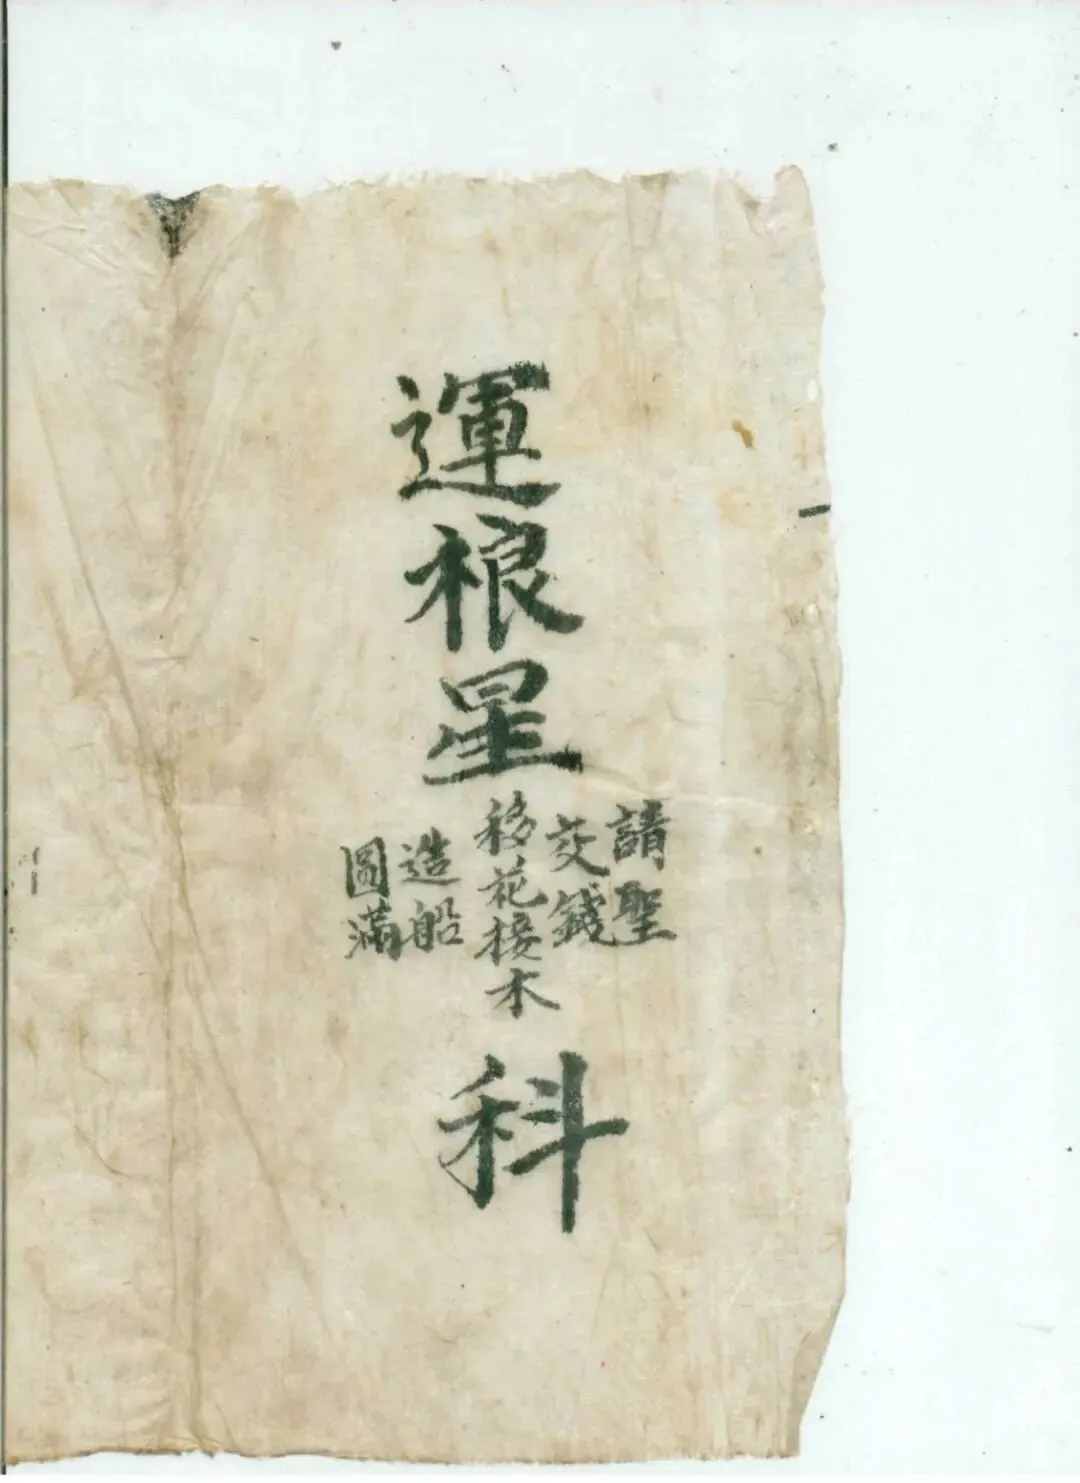 運根星
請聖
交錢
移花接木
造船
圓滿
科